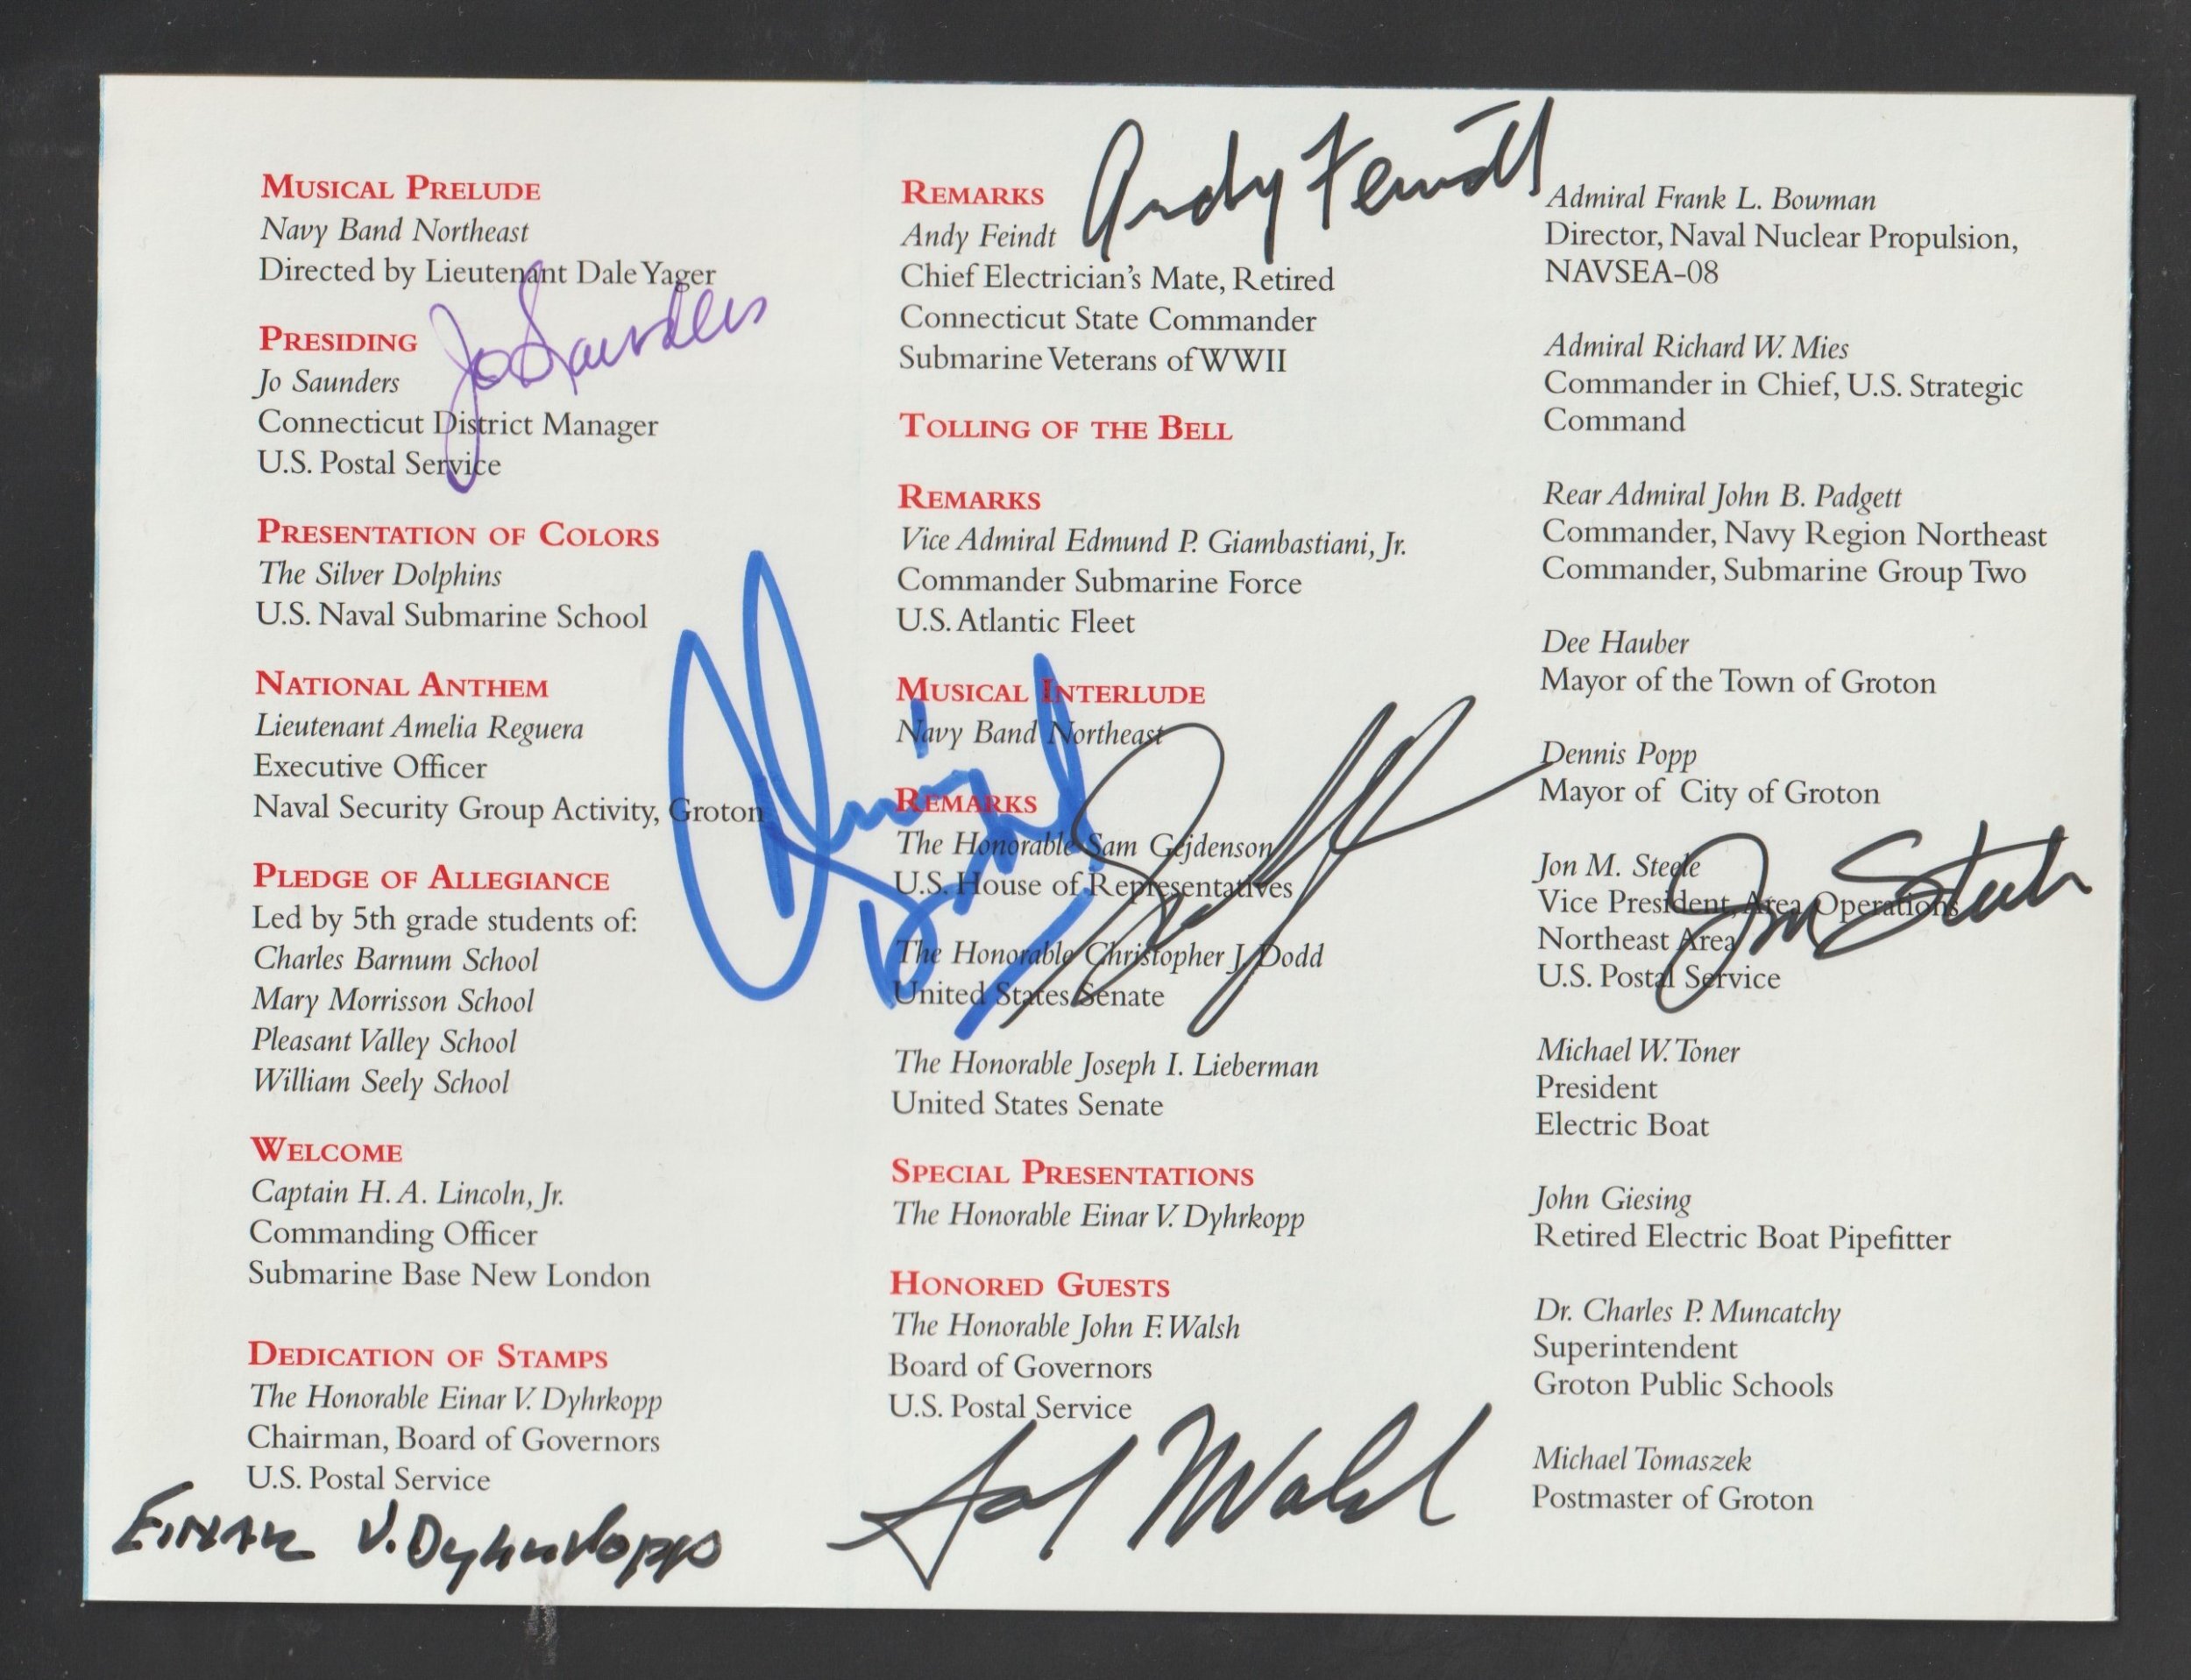 MUSICAL PRELUDE
Navy Band Northeast
Directed by Lieutenant Dale Yager
PRESIDING
Jo Saunders
Jo Saunders
Connecticut District Manager
U.S. Postal Service
PRESENTATION OF COLORS
The Silver Dolphins
U.S. Naval Submarine School
NATIONAL ANTHEM
Lieutenant Amelia Reguera
Executive Officer
Naval Security Group Activity, Groton
PLEDGE OF ALLEGIANCE
Led by 5th grade students of:
Charles Barnum School
Mary Morrisson School
Pleasant Valley School
William Seely School
WELCOME
Captain H. A. Lincoln, Jr.
Commanding Officer
Submarine Base New London
DEDICATION OF STAMPS
The Honorable Einar V. Dyhrkopp
Chairman, Board of Governors
U.S. Postal Service
EINAR V. Dyhrkopp
REMARKS
Andy Feindt
Andy Feindt
Chief Electrician's Mate, Retired
Connecticut State Commander
Submarine Veterans of WWII
TOLLING OF THE BELL
REMARKS
Vice Admiral Edmund P. Giambastiani, Jr.
Commander Submarine Force
U.S. Atlantic Fleet
MUSICAL INTERLUDE
Navy Band Northeast
REMARKS
The Honorable Sam Gejdenson
U.S. House of Representatives
The Honorable Christopher J. Dodd
United States Senate
The Honorable Joseph I. Lieberman
United States Senate
SPECIAL PRESENTATIONS
The Honorable Einar V. Dyhrkopp
HONORED GUESTS
The Honorable John F. Walsh
Board of Governors
U.S. Postal Service
Walsh
Admiral Frank L. Bowman
Director, Naval Nuclear Propulsion,
NAVSEA-08
Admiral Richard W. Mies
Commander in Chief, U.S. Strategic
Command
Rear Admiral John B. Padgett
Commander, Navy Region Northeast
Commander, Submarine Group Two
Dee Hauber
Mayor of the Town of Groton
Dennis Popp
Mayor of City of Groton
Jon M. Steele
Jon Steele
Vice President, Area Operations
Northeast Area
U.S. Postal Service
Michael W. Toner
President
Electric Boat
John Giesing
Retired Electric Boat Pipefitter
Dr. Charles P. Muncatchy
Superintendent
Groton Public Schools
Michael Tomaszek
Postmaster of Groton